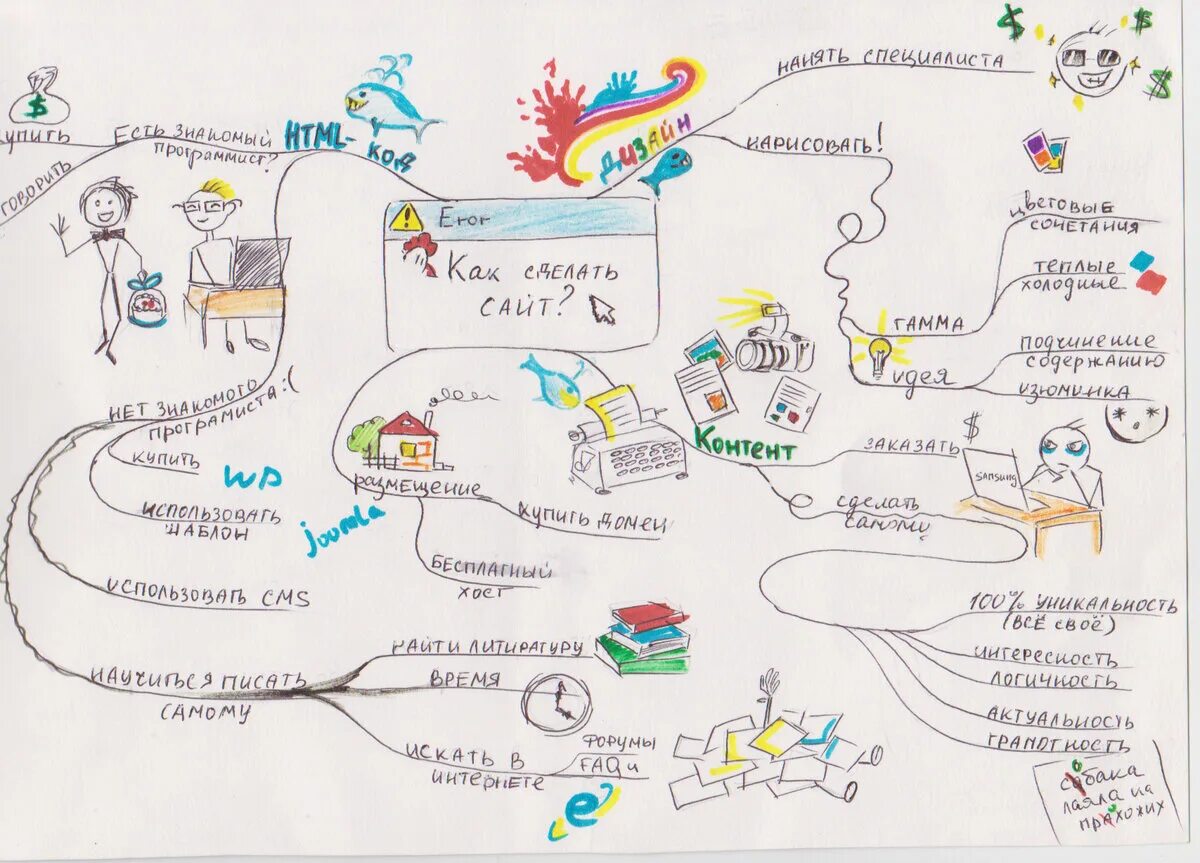 $
$
$
$
НАНЯТЬ СПЕЦИАЛИСТА
ДИЗАЙН
НАРИСОВАТЬ!
ЦВЕТОВЫЕ
СОЧЕТАНИЯ
ТЕПЛЫЕ
ХОЛОДНЫЕ
ГАММА
ИДЕЯ
ПОДЧИНЕНИЕ
СОДЕРЖАНИЮ
ИЗЮМИНКА
HTML-
КОД
ЕСТЬ ЗНАКОМЫЙ
ПРОГРАММИСТ?
УПИТЬ
ГОВОРИТЬ
Eror
КАК СДЕЛАТЬ
САЙТ?
НЕТ ЗНАКОМОГО
ПРОГРАМИСТА:(
КУПИТЬ
ИСПОЛЬЗОВАТЬ
ШАБЛОН
WP
joomla
ИСПОЛЬЗОВАТЬ CMS
НАУЧИТЬСЯ ПИСАТЬ
САМОМУ
НАЙТИ ЛИТИРАТУРУ
ВРЕМЯ
ИСКАТЬ В
ИНТЕРНЕТЕ
ФОРУМЫ
FAQи
e
РАЗМЕЩЕНИЕ
КУПИТЬ ДОМЕН
БЕСПЛАТНЫЙ
ХОСТ
КОНТЕНТ
ЗАКАЗАТЬ
$
СДЕЛАТЬ
САМОМУ
SAMSUNG
100% УНИКАЛЬНОСТЬ
(ВСЁ СВОЁ)
ИНТЕРЕСНОСТЬ
ЛОГИЧНОСТЬ
АКТУАЛЬНОСТЬ
ГРАМОТНОСТЬ
собака
лаяла на
прохожих